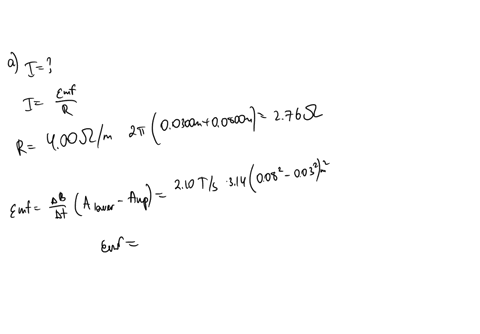 a) I = ?
I = Emf/R
R = 4.00Ω/m 2π(0.0300m+0.0800m) = 2.76Ω
Emf = ΔB/Δt (A lower - Aup) = 2.10 T/s · 3.14(0.08² - 0.03²)m²
Emf =